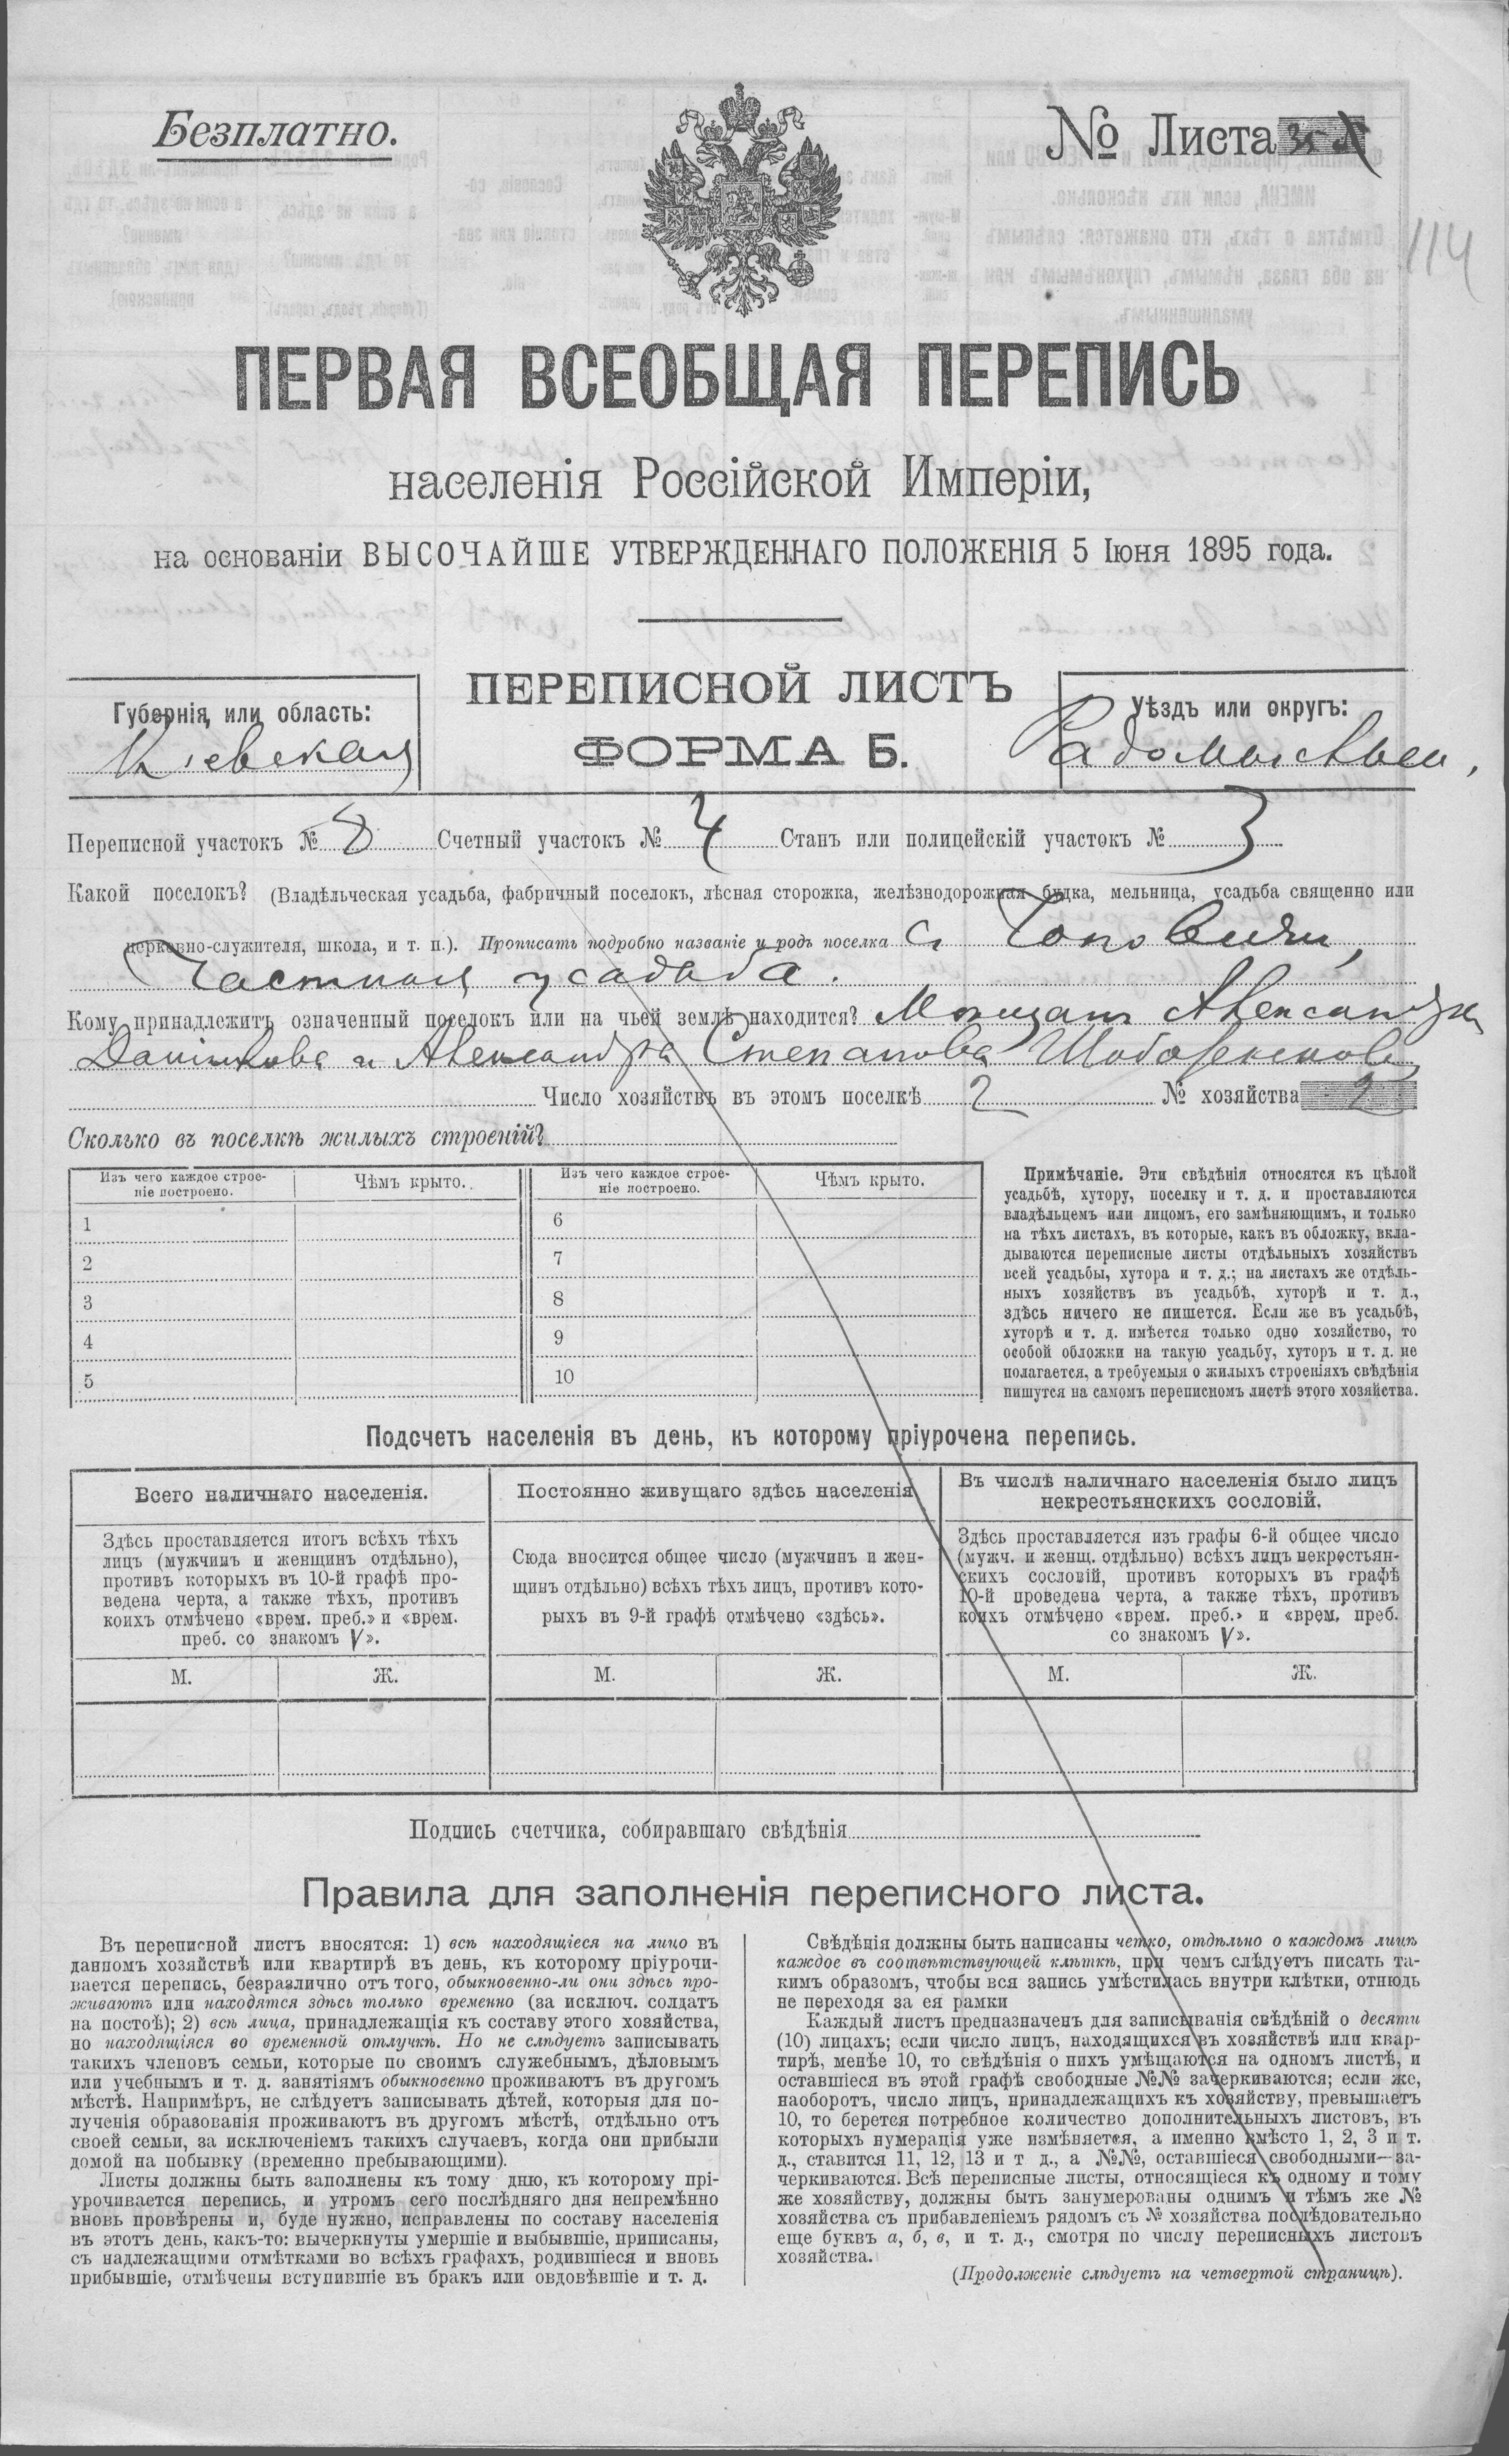 Безплатно.
№ Листа
114
ПЕРВАЯ ВСЕОБЩАЯ ПЕРЕПИСЬ
населенія Россійской Имперіи,
на основаніи ВЫСОЧАЙШЕ УТВЕРЖДЕННАГО ПОЛОЖЕНІЯ 5 Іюня 1895 года.
ПЕРЕПИСНОЙ ЛИСТЪ
ФОРМА Б.
Губернія, или область:
Кіевская
Уѣздъ или округъ:
Радомысльск,
Переписной участокъ № 8 Счетный участокъ № 4 Станъ или полицейскій участокъ № 3
Какой поселокъ? (Владѣльческая усадьба, фабричный поселокъ, лѣсная сторожка, желѣзнодорожная будка, мельница, усадьба священно или
церковно-служителя, школа, и т. п.). Прописать подробно названіе и родъ поселка с. Чоповичи,
Частная усадьба.
Кому принадлежитъ означенный поселокъ или на чьей землѣ находится? Мѣщанъ Александра
Данілова и Александра Степанова
Число хозяйствъ въ этомъ поселкѣ 2 № хозяйства 2
Сколько въ поселкѣ жилыхъ строеній?
Изъ чего каждое строе-
ніе построено.
Чѣмъ крыто.
Изъ чего каждое строе-
ніе построено.
Чѣмъ крыто.
1
6
2
7
3
8
4
9
5
10
Примѣчаніе. Эти свѣдѣнія относятся къ цѣлой
усадьбѣ, хутору, поселку и т. д. и проставляются
владѣльцемъ или лицомъ, его замѣняющимъ, и только
на тѣхъ листахъ, въ которые, какъ въ обложку, вкла-
дываются переписные листы отдѣльныхъ хозяйствъ
всей усадьбы, хутора и т. д.; на листахъ же отдѣль-
ныхъ хозяйствъ въ усадьбѣ, хуторѣ и т. д.,
здѣсь ничего не пишется. Если же въ усадьбѣ,
хуторѣ и т. д. имѣется только одно хозяйство, то
особой обложки на такую усадьбу, хуторъ и т. д. не
полагается, а требуемыя о жилыхъ строеніяхъ свѣдѣнія
пишутся на самомъ переписномъ листѣ этого хозяйства.
Подсчетъ населенія въ день, къ которому пріурочена перепись.
Всего наличнаго населенія.
Здѣсь проставляется итогъ всѣхъ тѣхъ
лицъ (мужчинъ и женщинъ отдѣльно),
противъ которыхъ въ 10-й графѣ про-
ведена черта, а также тѣхъ, противъ
коихъ отмѣчено «врем. преб.» и «врем.
преб. со знакомъ V».
М. Ж.
Постоянно живущаго здѣсь населенія
Сюда вносится общее число (мужчинъ и жен-
щинъ отдѣльно) всѣхъ тѣхъ лицъ, противъ кото-
рыхъ въ 9-й графѣ отмѣчено «здѣсь».
М. Ж.
Въ числѣ наличнаго населенія было лицъ
некрестьянскихъ сословій.
Здѣсь проставляется изъ графы 6-й общее число
(мужч. и женщ. отдѣльно) всѣхъ лицъ некрестьян-
скихъ сословій, противъ которыхъ въ графѣ
10-й проведена черта, а также тѣхъ, противъ
коихъ отмѣчено «врем. преб.» и «врем. преб.
со знакомъ V».
М. Ж.
Подпись счетчика, собиравшаго свѣдѣнія
Правила для заполненія переписного листа.
Въ переписной листъ вносятся: 1) всѣ находящіеся на лицо въ
данномъ хозяйствѣ или квартирѣ въ день, къ которому пріурочи-
вается перепись, безразлично отъ того, обыкновенно-ли они здѣсь про-
живаютъ или находятся здѣсь только временно (за исключ. солдатъ
на постоѣ); 2) всѣ лица, принадлежащія къ составу этого хозяйства,
но находящіяся во временной отлучкѣ. Но не слѣдуетъ записывать
такихъ членовъ семьи, которые по своимъ служебнымъ, дѣловымъ
или учебнымъ и т. д. занятіямъ обыкновенно проживаютъ въ другомъ
мѣстѣ. Напримѣръ, не слѣдуетъ записывать дѣтей, которыя для по-
лученія образованія проживаютъ въ другомъ мѣстѣ, отдѣльно отъ
своей семьи, за исключеніемъ такихъ случаевъ, когда они прибыли
домой на побывку (временно пребывающими).
Листы должны быть заполнены къ тому дню, къ которому прі-
урочивается перепись, и утромъ сего послѣдняго дня непремѣнно
вновь провѣрены и, буде нужно, исправлены по составу населенія
въ этотъ день, какъ-то: вычеркнуты умершіе и выбывшіе, приписаны,
съ надлежащими отмѣтками во всѣхъ графахъ, родившіеся и вновь
прибывшіе, отмѣчены вступившіе въ бракъ или овдовѣвшіе и т. д.
Свѣдѣнія должны быть написаны четко, отдѣльно о каждомъ лицѣ
каждое въ соотвѣтствующей клѣткѣ, при чемъ слѣдуетъ писать та-
кимъ образомъ, чтобы вся запись умѣстилась внутри клѣтки, отнюдь
не переходя за ея рамки
Каждый листъ предназначенъ для записыванія свѣдѣній о десяти
(10) лицахъ; если число лицъ, находящихся въ хозяйствѣ или квар-
тирѣ, менѣе 10, то свѣдѣнія о нихъ умѣщаются на одномъ листѣ, и
оставшіеся въ этой графѣ свободные №№ зачеркиваются; если же,
наоборотъ, число лицъ, принадлежащихъ къ хозяйству, превышаетъ
10, то берется потребное количество дополнительныхъ листовъ, въ
которыхъ нумерація уже измѣняется, а именно вмѣсто 1, 2, 3 и т.
д., ставится 11, 12, 13 и т д., а №№, оставшіеся свободными—за-
черкиваются. Всѣ переписные листы, относящіеся къ одному и тому
же хозяйству, должны быть занумерованы однимъ и тѣмъ же №
хозяйства съ прибавленіемъ рядомъ съ № хозяйства послѣдовательно
еще буквъ а, б, в, и т. д., смотря по числу переписныхъ листовъ
хозяйства.
(Продолженіе слѣдуетъ на четвертой страницѣ).